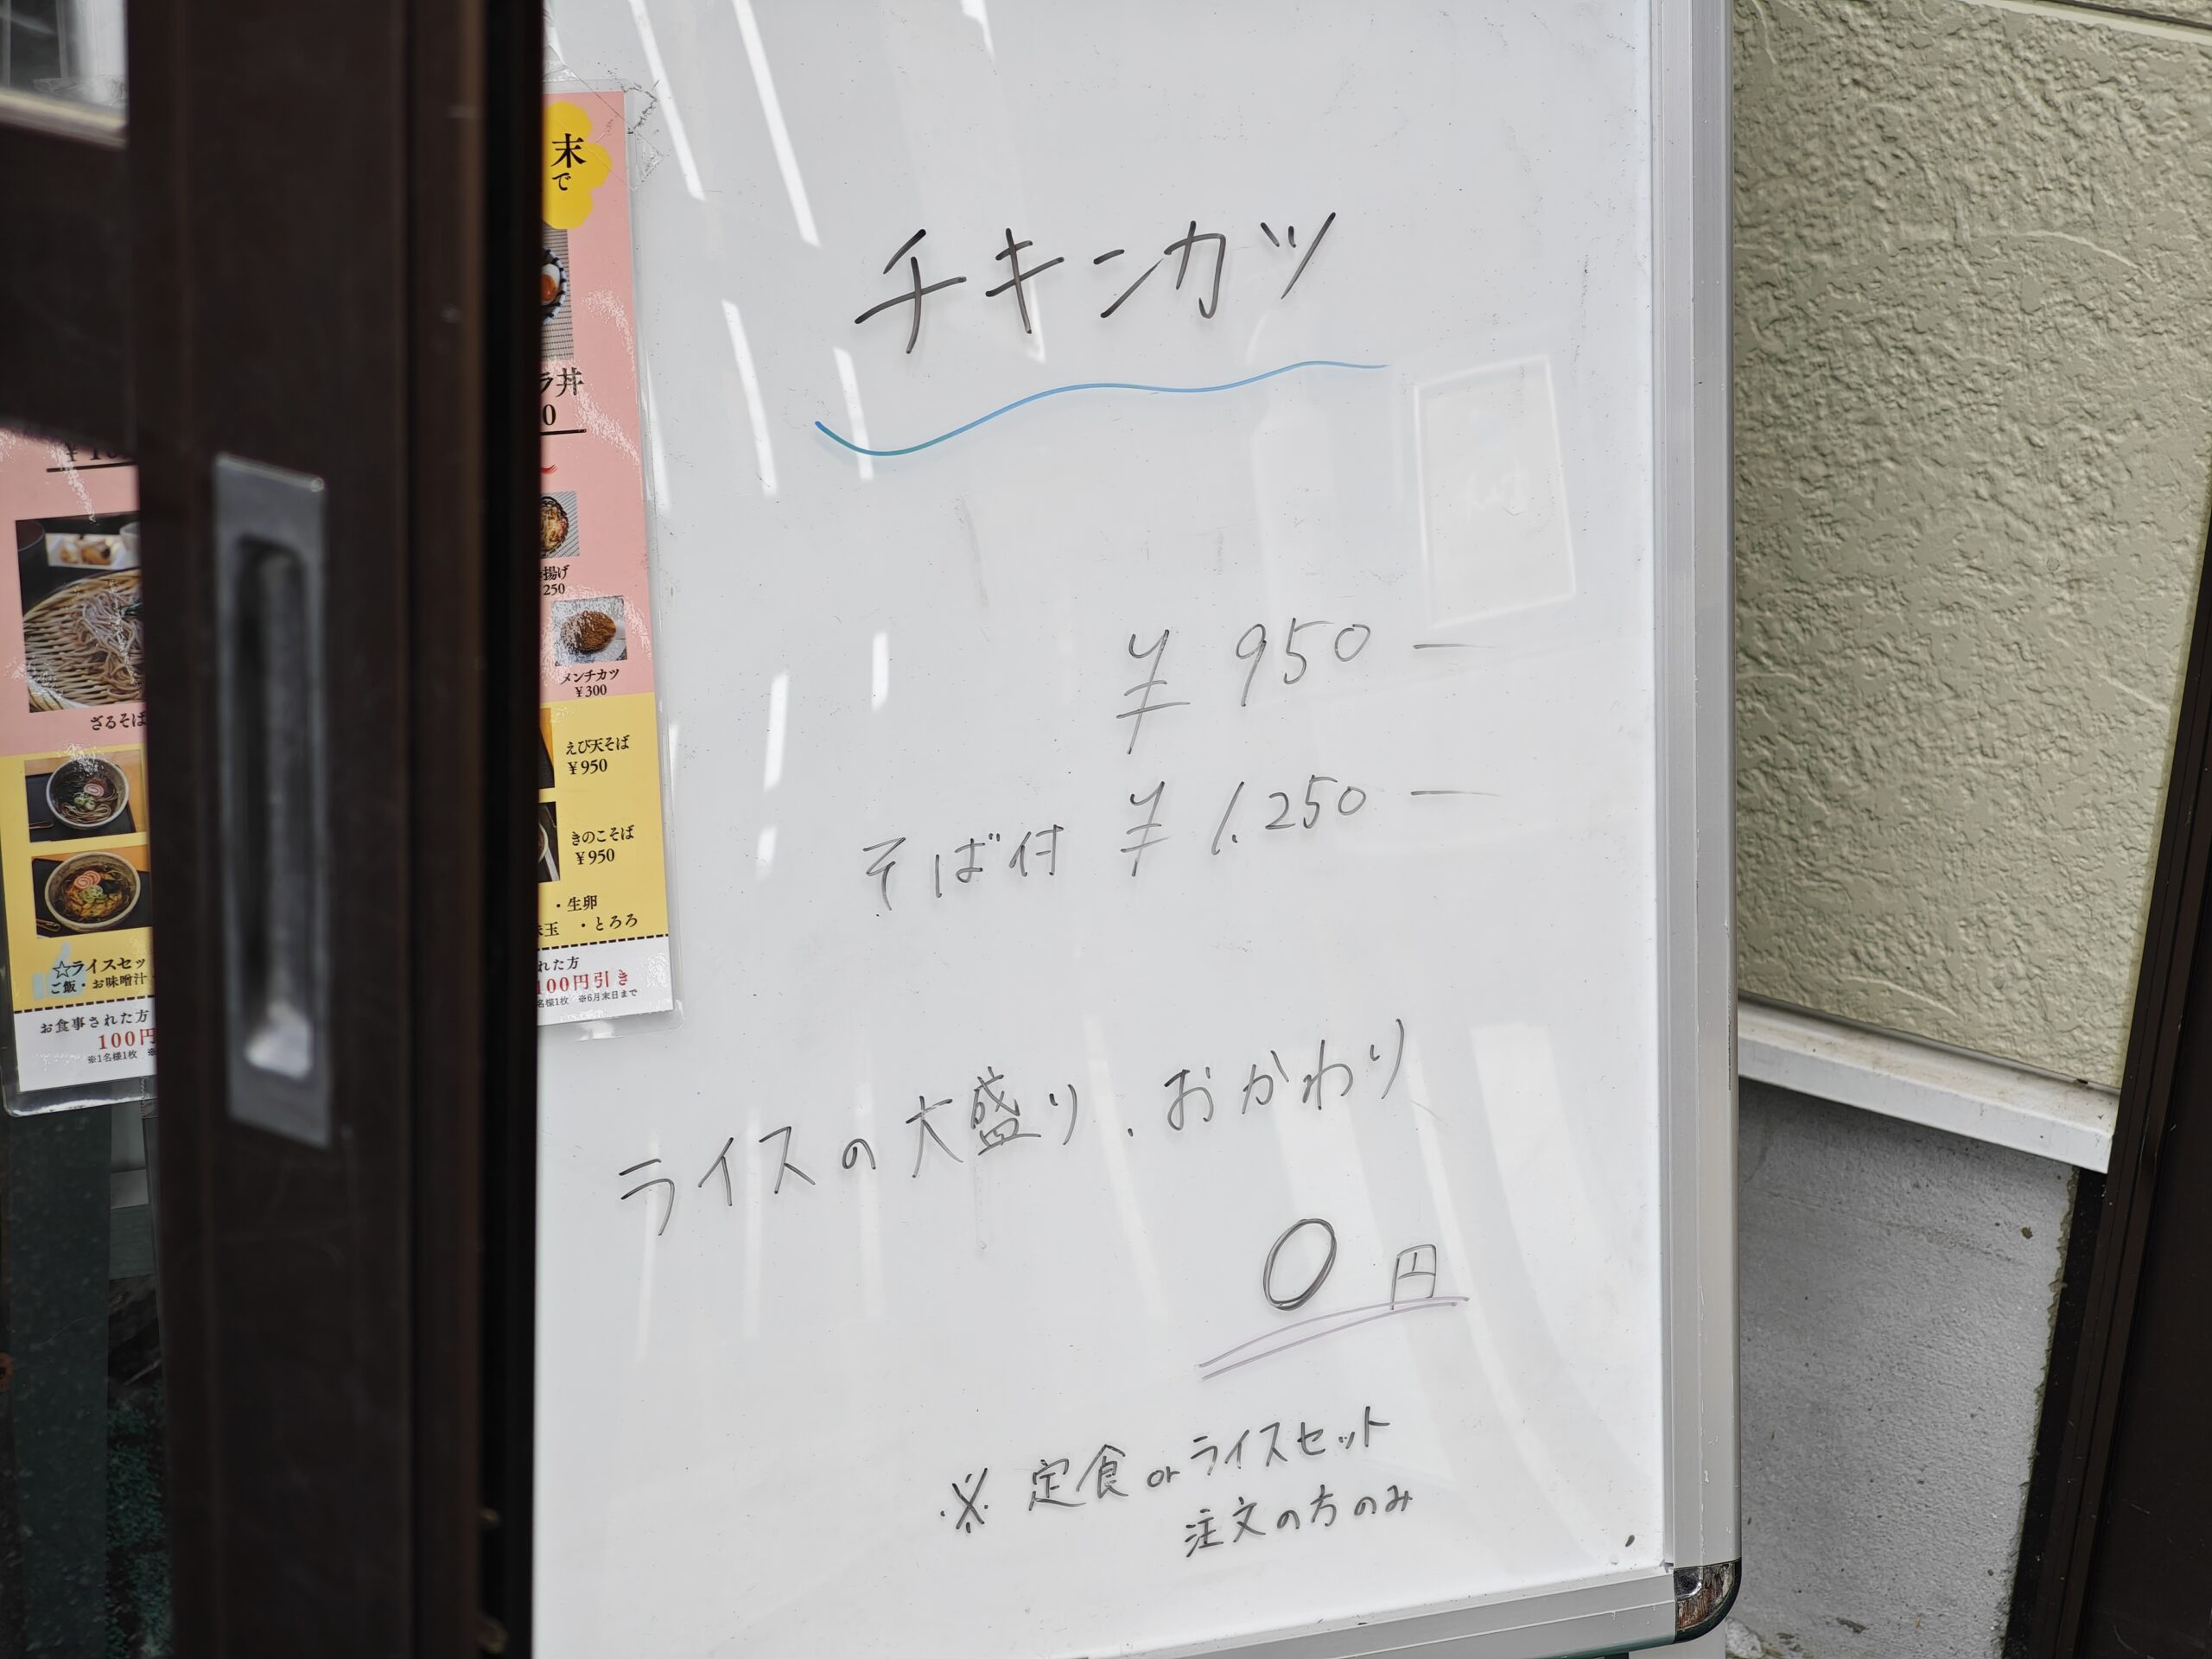 チキンカツ
¥950ー
そば付 ¥1.250ー
ライスの大盛り、おかわり
0円
※定食orライスセット
注文の方のみ
末
で
丼
0
揚げ
250
メンチカツ
¥300
えび天そば
¥950
きのこそば
¥950
・生卵
玉 ・とろろ
れた方
100円引き
名様1枚 ※6月末日まで
ざるそば
☆ライスセッ
ご飯・お味噌汁
お食事された方
100円
※1名様1枚